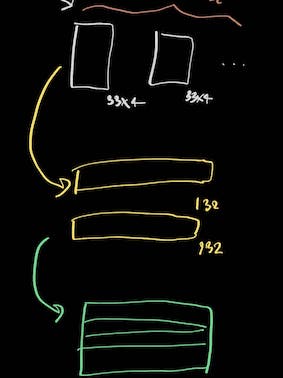 33x4 33x4 ...
132
132